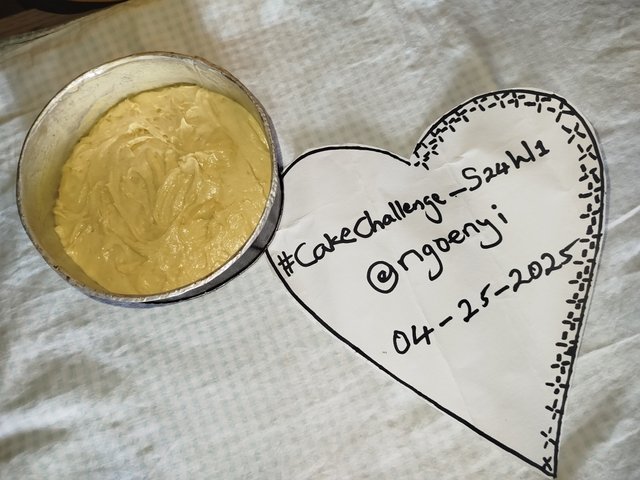 #CakeChallenge_S24W1
@ngoenyi
04-25-2025